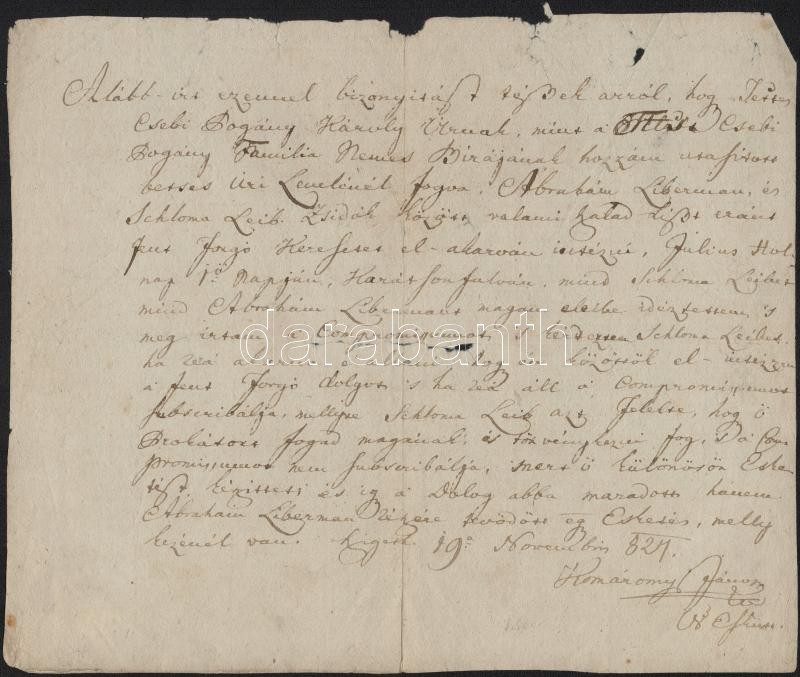 Alább-irt ezennel bizonyitást tészek arról, hog Tettes
Csebi Pogány Károly Úrnak, mint a Csebi
Pogány Familia Nemes Birájának hozzám utasitott
betses úri Levelénél fogva, Ábrahám Liberman, és
Schloma Leib Zsidók között valami Lißt eránt
fent forgó Keresetet el-akarván intézni, Július Hol-
nap 1ő Napján, Karátsonfalván, mind Schloma Leibet
mind Abrahám Libermant magam eleibe idéztettem s
meg irtam a Compromissumot, s kérdeztem Schloma Leibot,
ha reá hog én közöttök el-intézzem
a fent forgó dolgot s ha reá áll a Compromissumot
subscribálja, mellyre Schloma Leib azt felelte, hog ő
Prokátort fogad magának, és törvénykezni fog, s a Com
promissumot nem subscribálja, mert ő különösön Eske-
tést készittet, és ig a Dolog abba maradott hanem
Abrahám Liberman részére ködött eg Esketés, melly
kezénél van. 19a Novembris 827.
Komáromy János
Vs Eskütt
darabanth